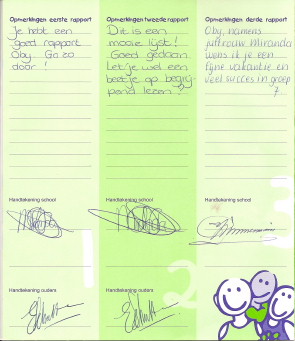 Opmerkingen eerste rapport
Je hebt een
goed rapport
Oby. Ga zo
door!
Handtekening school
Handtekening ouders
1
Opmerkingen tweede rapport
Dit is een
mooie lijst!
Goed gedaan.
Let je wel een
beetje op begrij
pend lezen?
Handtekening school
Handtekening ouders
2
Opmerkingen derde rapport
Oby, namens
juffrouw Miranda
wens ik je een
fijne vakantie en
veel succes in groep
7.
Handtekening school
3